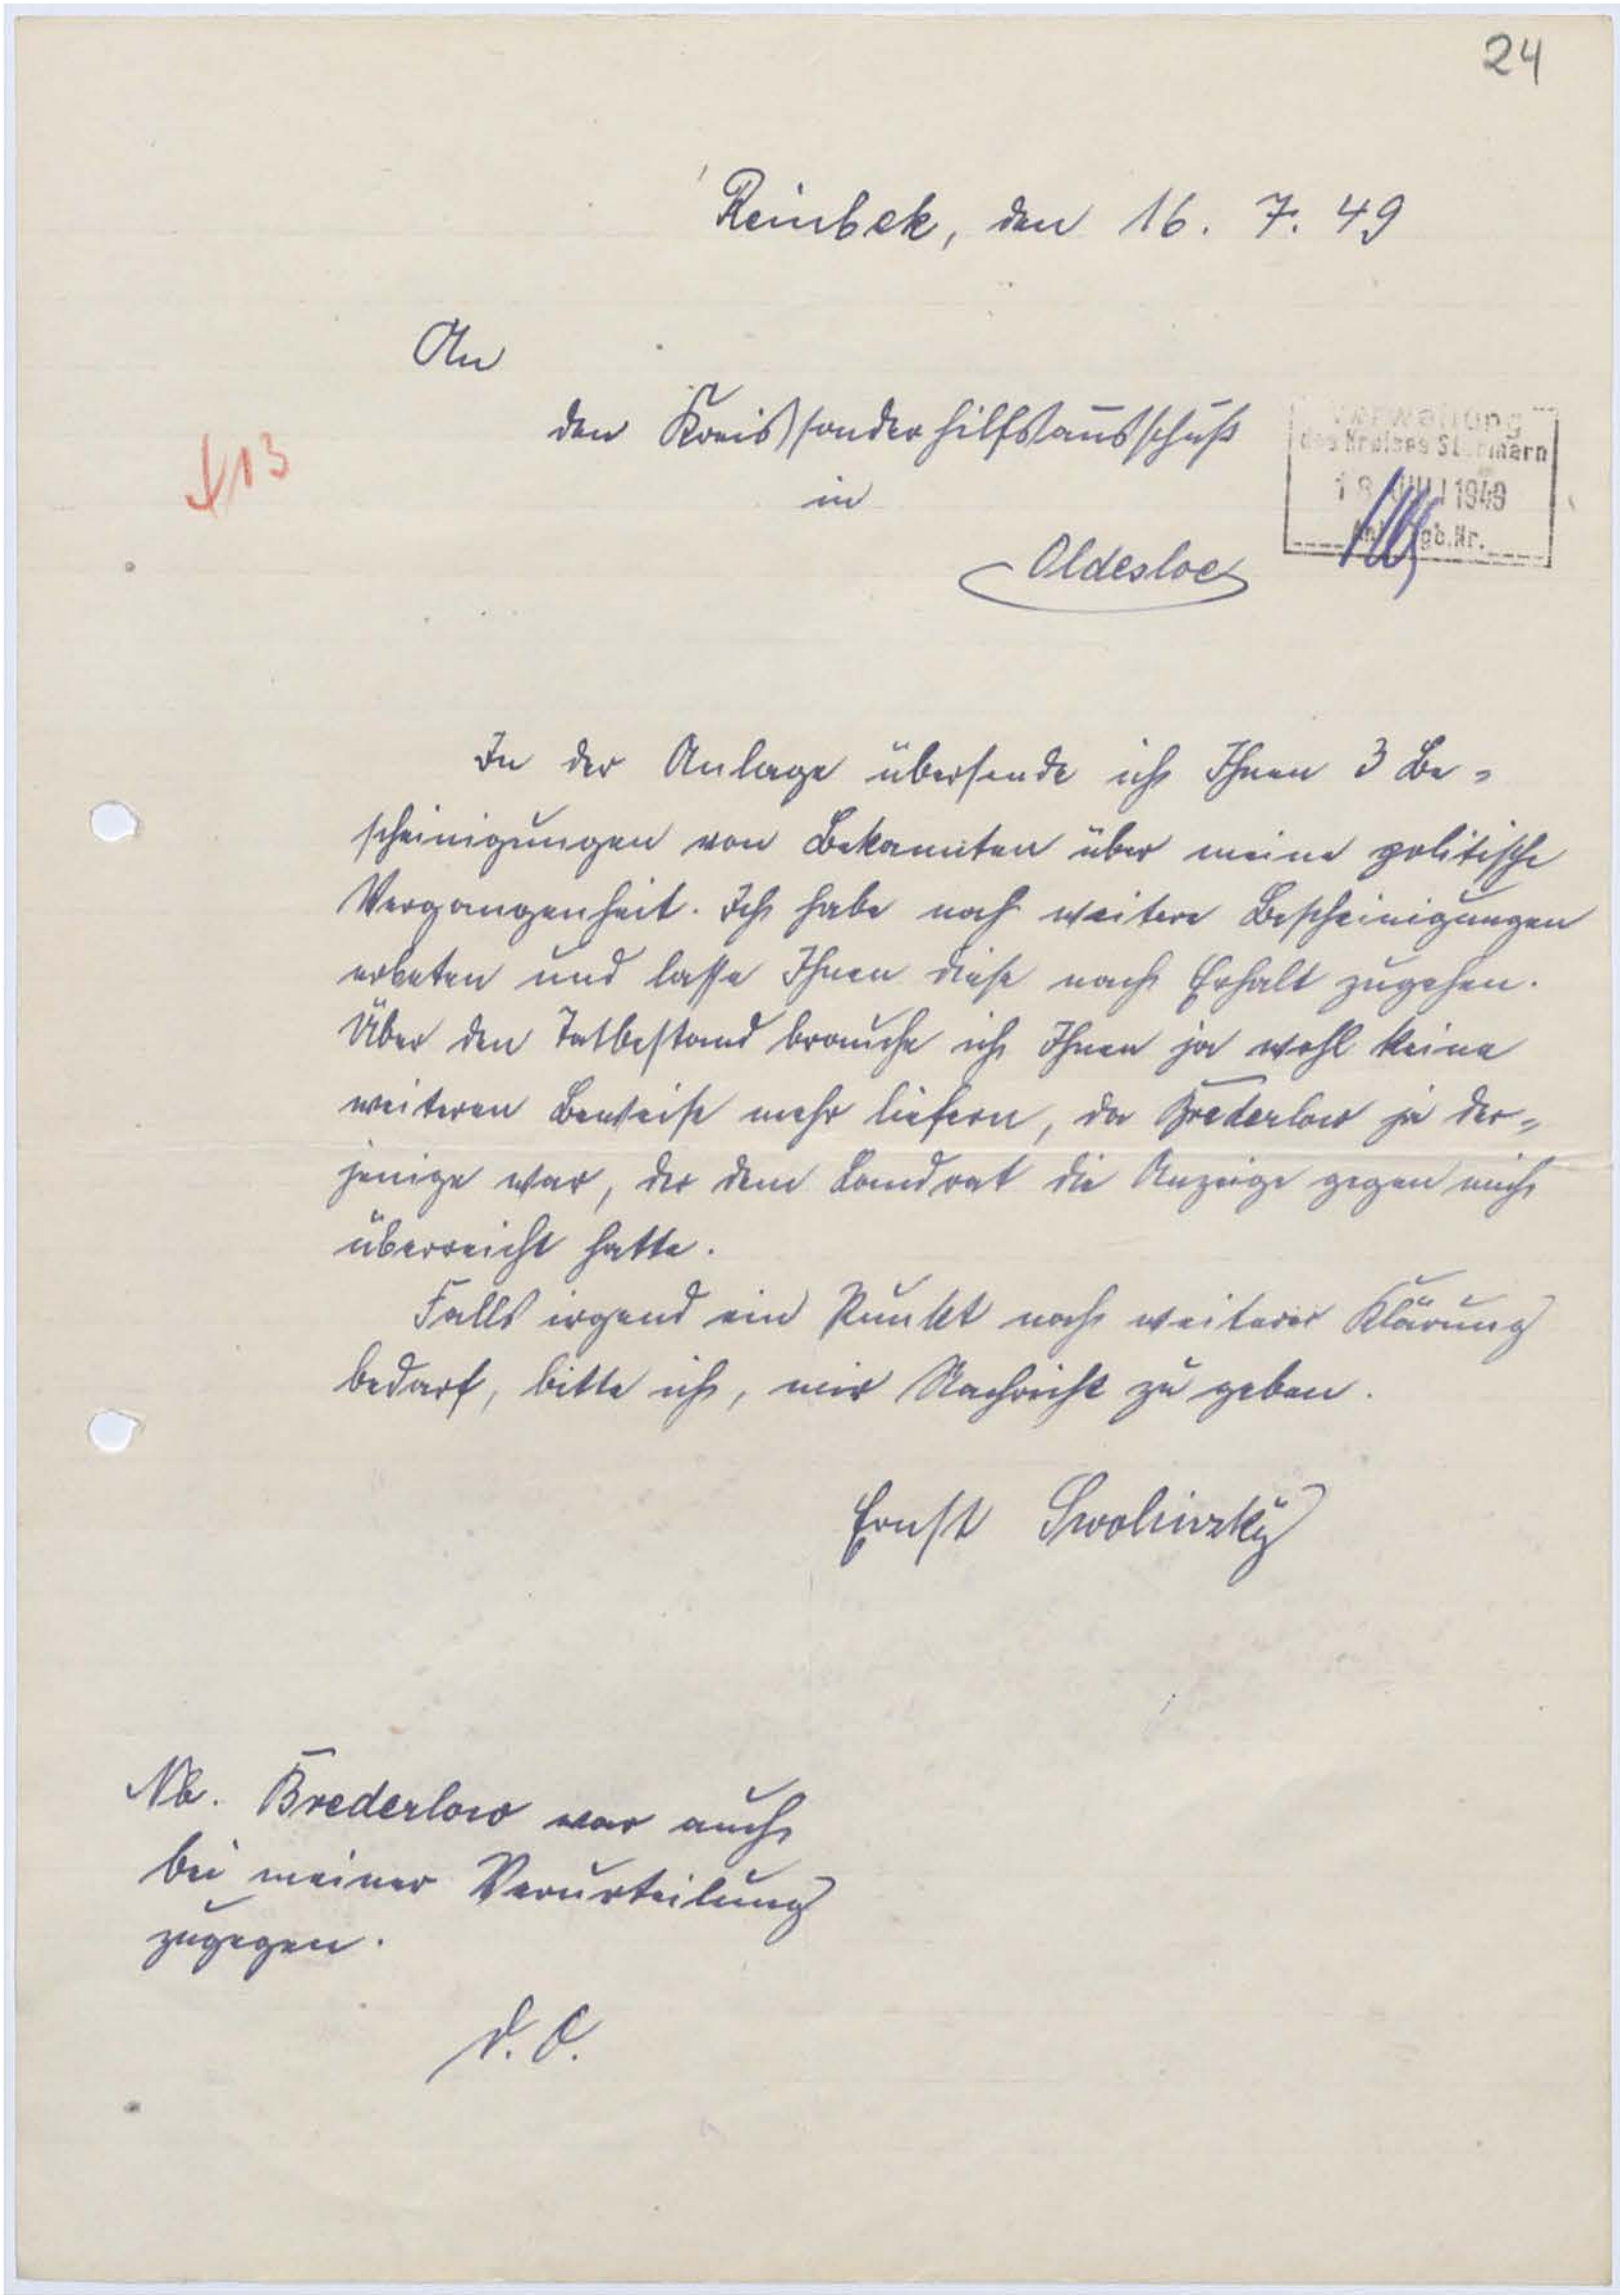 24
Reinbek, den 16. 7. 49
An
den Kreissonderhilfsausschuß
in
Oldesloe
Verwaltung
des Kreises Stormarn
18. JULI 1949
gb. Nr.
13
In der Anlage übersende ich Ihnen 3 Be=
scheinigungen von Bekannten über meine politische
Vergangenheit. Ich habe noch weitere Bescheinigungen
erbeten und lasse Ihnen diese nach Erhalt zugehen.
Über den Tatbestand brauche ich Ihnen ja wohl keine
weiteren Beweise mehr liefern, da Brederlow ja der=
jenige war, der dem Landrat die Anzeige gegen mich
überreicht hatte.
Falls irgend ein Punkt noch weiterer Klärung
bedarf, bitte ich, mir Nachricht zu geben.
Ernst
Nb. Brederlow war auch
bei meiner Verurteilung
zugegen.
D. O.